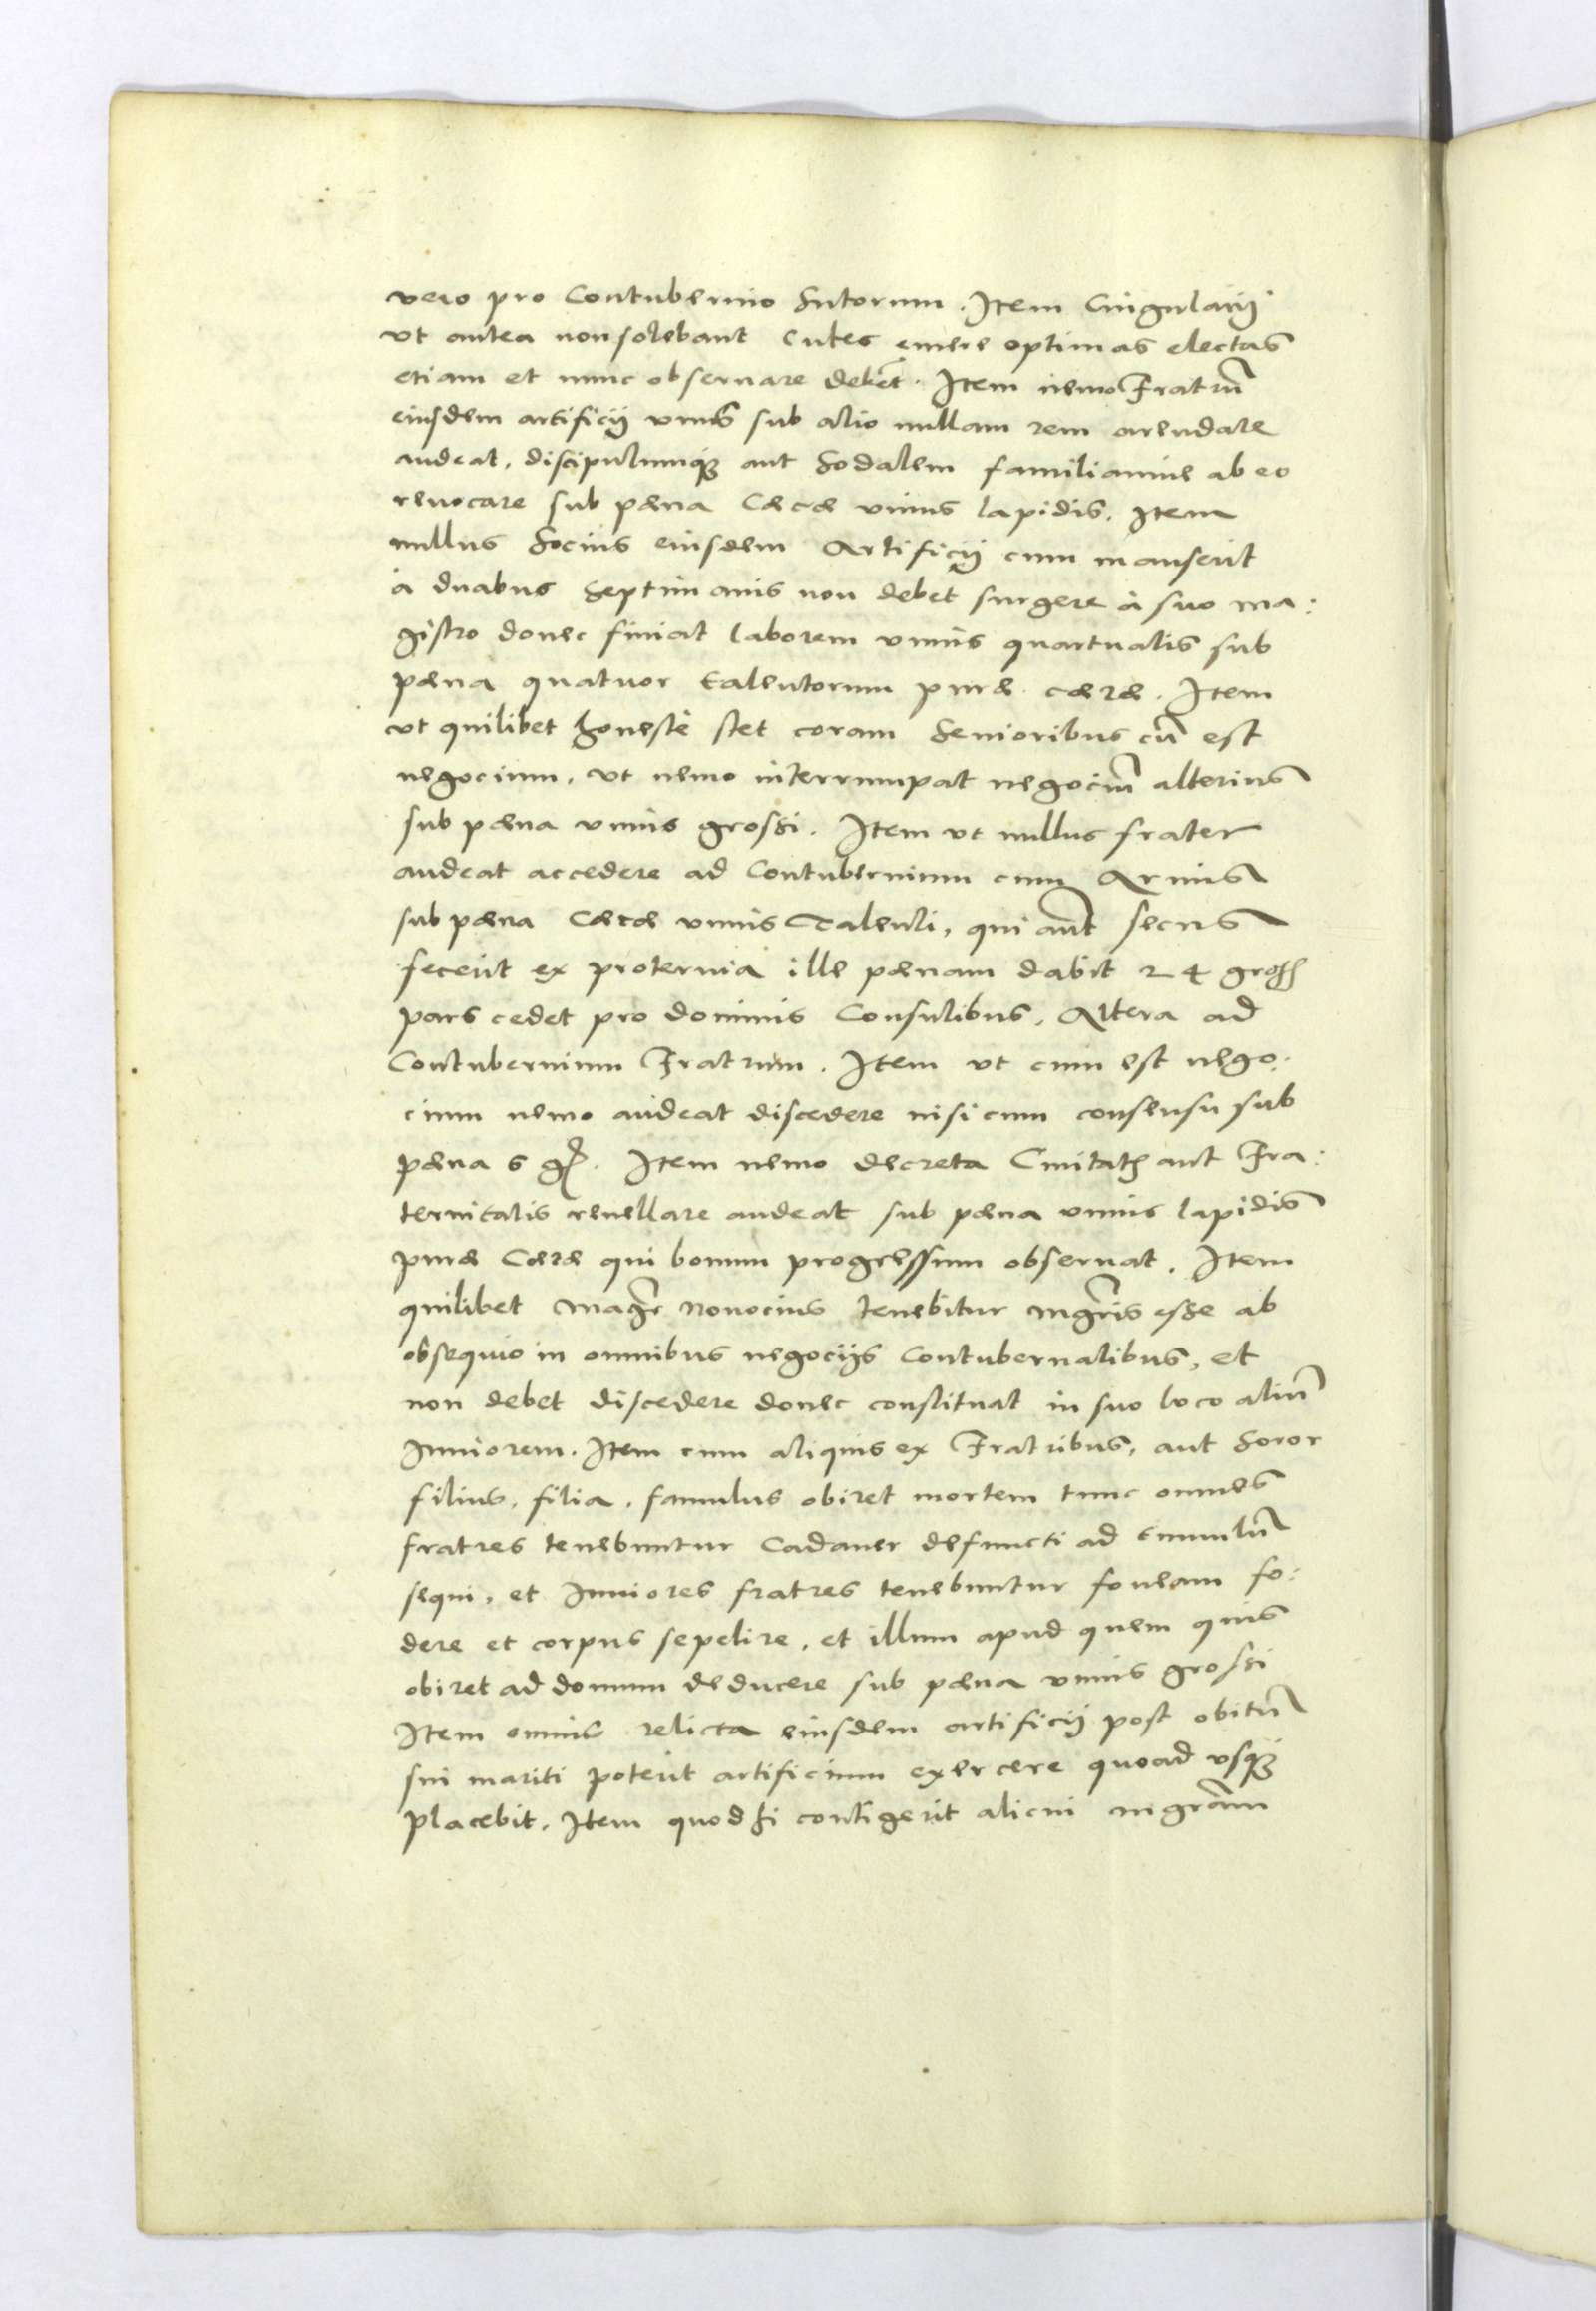 vero pro Contubernio Sutorum. Item Cingularij
vt antea non solebant cutes emere optimas electas
etiam et nunc obseruare debẽt. Item nemo Fratrũ
eiusdem artificij vnus sub alio nullam rem arendare
audeat, discipulumq́ȝ aut Sodalem familiamue ab eo
reuocare sub pæna Cæræ vnius lapidis. Item
nullus Socius eiusdem Artificij cum manserit
à duabus Septimanis non debet surgere à suo ma:
gistro donec finiat laborem vnius quartualis sub
pæna quatuor talentorum puræ cæræ. Item
vt quilibet honestè stet coram Senioribus cũ est
negocium, vt nemo interrumpat negociũ alterius
sub pæna vnius grossi. Item vt nullus frater
audeat accedere ad Contubernium cum Armis
sub pæna Cæræ vnius Talenti, qui aũt secus
fecerit ex proteruia ille pænam dabit 24 gross
pars cedet pro dominis Consulibus, Altera ad
Contubernium Fratrum. Item vt cum est nego:
cium nemo audeat discedere nisi cum consensu sub
pæna 6 gr. Item nemo decreta Ciuitatis aut Fra:
ternitatis reuellare audeat sub pæna vnius lapidis
puræ Cæræ qui bonum progressum obseruat. Item
quilibet magr̃ Nouocius tenebitur mgr̃is esse ab
obsequio in omnibus negocijs Contubernalibus, et
non debet discedere donec constituat in suo loco aliũ
Iuniorem. Item cum aliquis ex Fratribus, aut Soror
filius, filia, famulus obiret mortem tunc omnes
fratres tenebuntur Cadauer defuncti ad tumulũ
sequi, et Iuniores fratres tenebuntur foueam fo:
dere et corpus sepelire, et illum apud quem quis
obiret ad domum deducere sub pæna vnius grossi
Item omnis relicta eiusdem artificij post obitũ
sui mariti poterit artificium exercere quoad vsq́ȝ
placebit. Item quod si contigerit alicui mgrãm